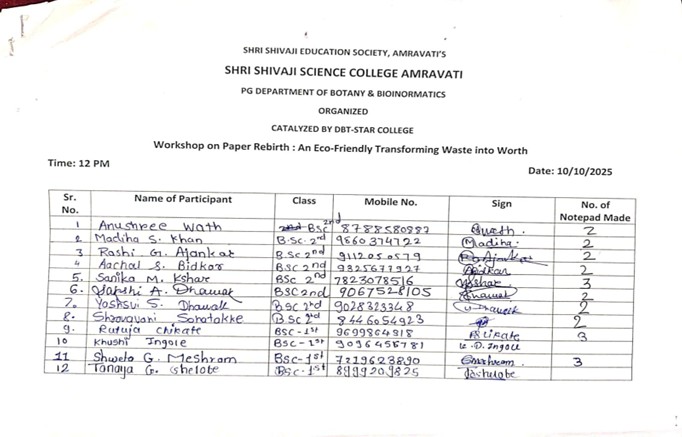 SHRI SHIVAJI EDUCATION SOCIETY, AMRAVATI'S
SHRI SHIVAJI SCIENCE COLLEGE AMRAVATI
PG DEPARTMENT OF BOTANY & BIOINORMATICS
ORGANIZED
CATALYZED BY DBT-STAR COLLEGE
Workshop on Paper Rebirth : An Eco-Friendly Transforming Waste into Worth
Time: 12 PM
Date: 10/10/2025
Sr. No. Name of Participant Class Mobile No. Sign No. of Notepad Made
1 Anushree Wath BSc 2nd 8788580887 2
2 Madiha S. Khan B.Sc. 2nd 9860374722 Madiha 2
3 Rashi G. Ajankar B.Sc 2nd 9112050579 Ajankar 2
4 Aachal S. Bidkar BSc 2nd 9325677927 Bidkar 2
5. Sanika M. Kshar BSc 2nd 7823078516 Kshar 3
6. A. Dhawat BSC 2nd 9067528105 2
7. S. Dhawale BSc 2nd 9028323348 2
8. Shravani BSc 2nd 8446054923 2
9. Rutuja Chikate BSC-1st 9699864918 3
10 Khushi Ingole BSC-1st 9096456781 K. D. Ingole
11 Shweta G. Meshram BSC-1st 7219623890 3
12 Tanaya G. Ghelote BSC-1st 8999209825